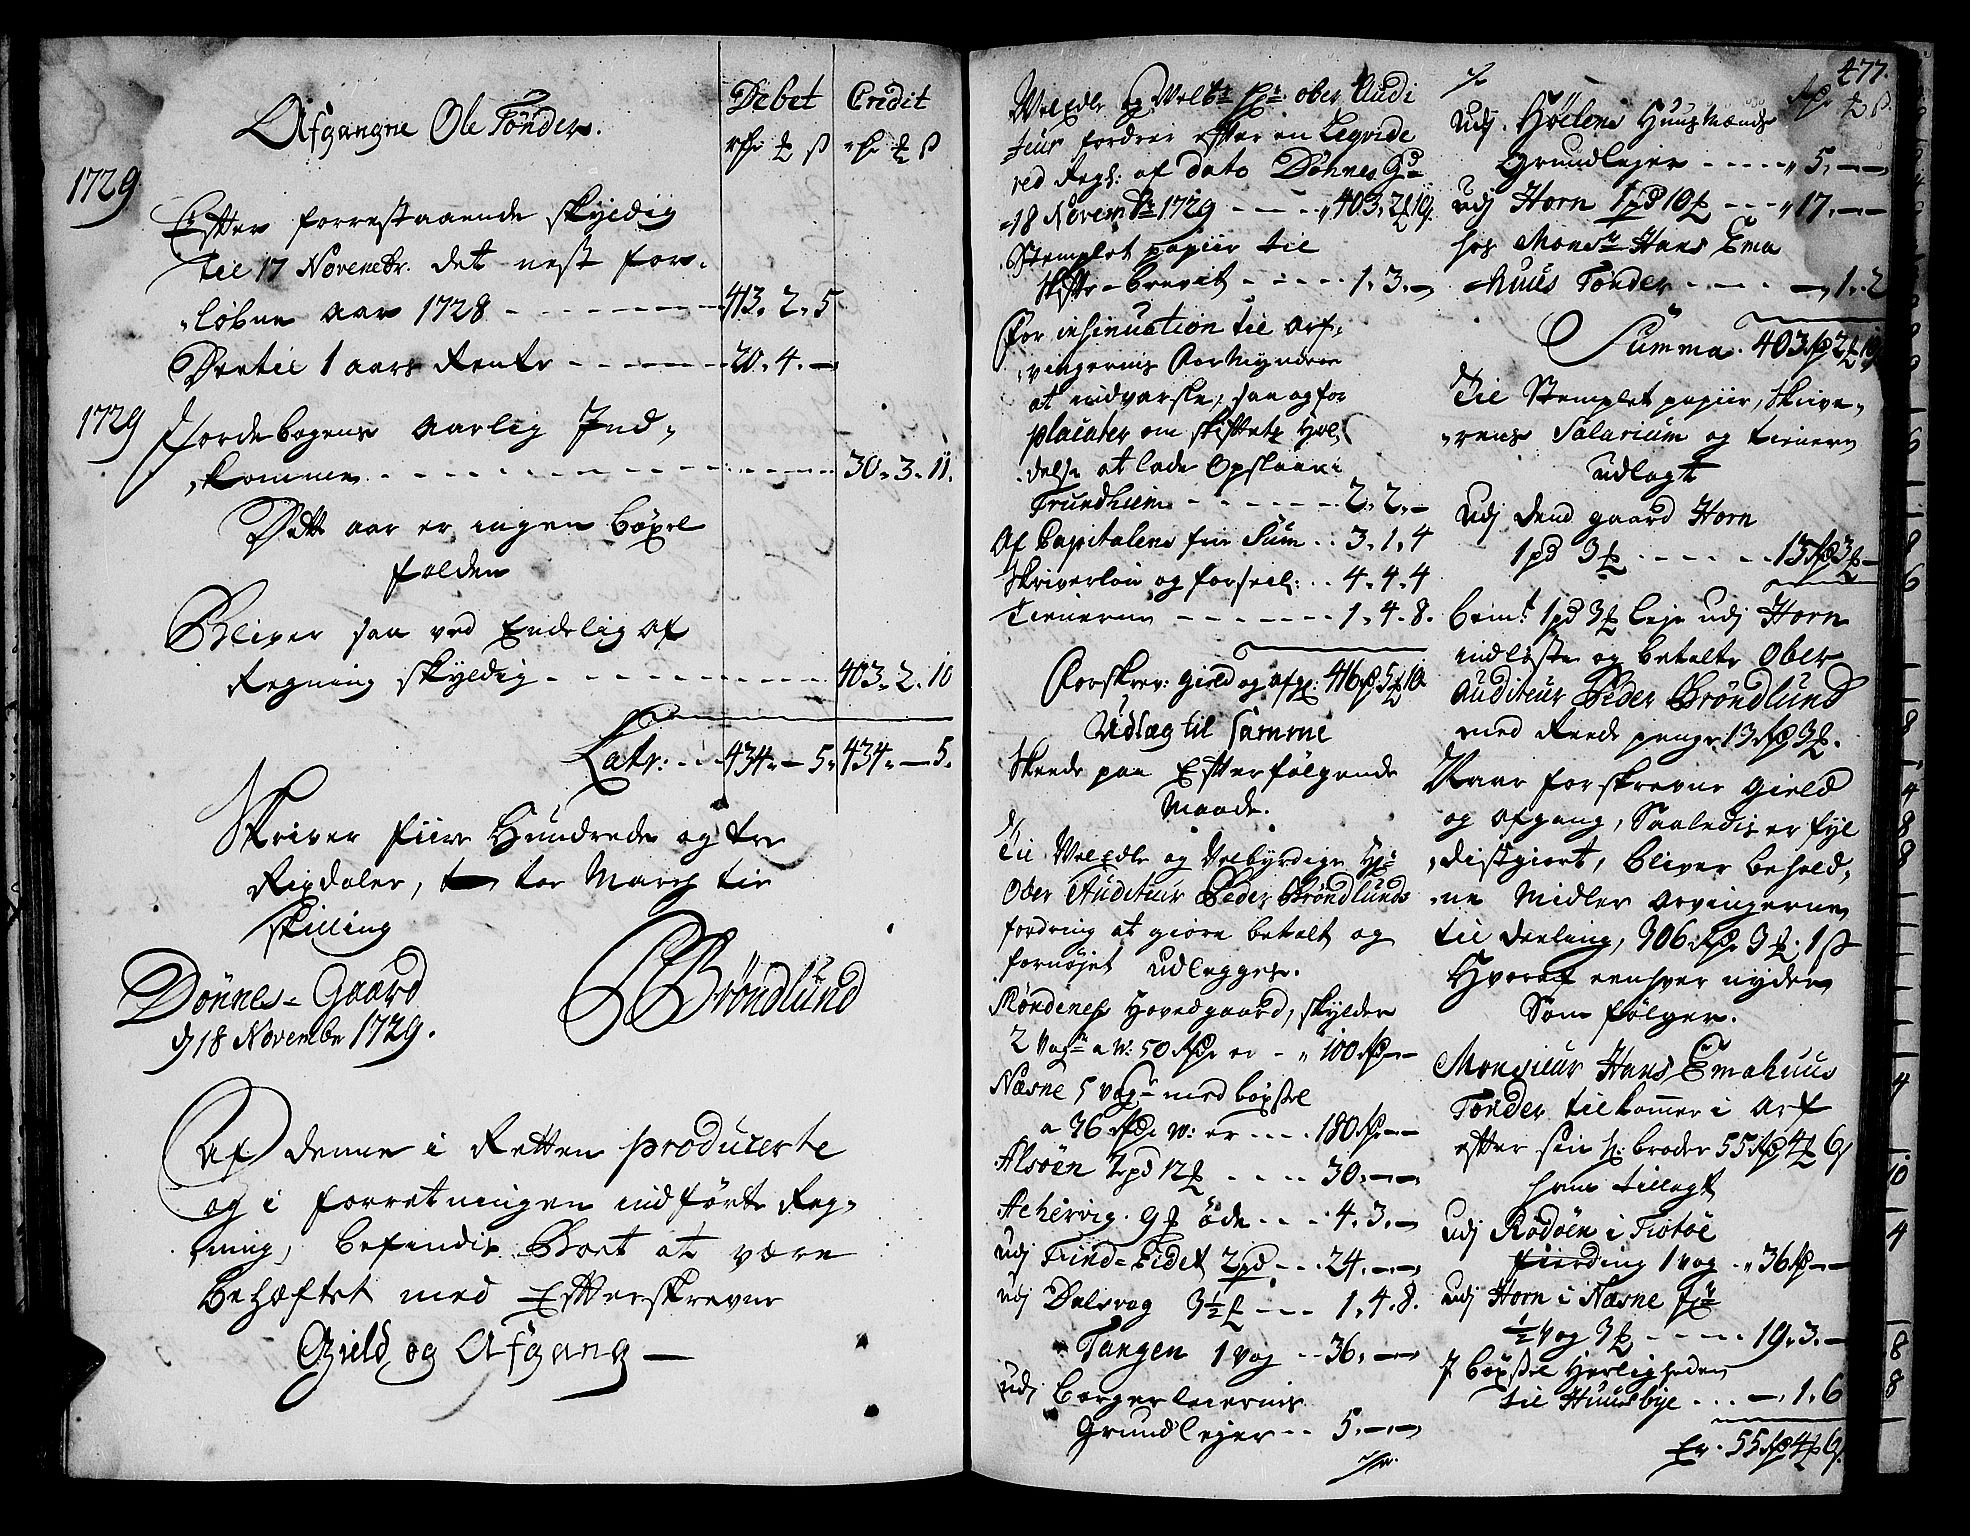 Debet Credit
Afgangne Ole Tönder.
1729
Efter forrestaaende skyldig
til 17 Novembr. det nest for-
løbne aar 1728 - - - - 413. 2. 5
Dertil 1 aars Rente - - - - 20. 4. —
1729 Jordebogens aarlig Ind-
komme. - - - - 30. 3. 11.
Dette aar er ingen böxel
falden
Bliver saa ved Endelig af
Regning skyldig - - - - 403. 2. 10
Latr: - - 434. — 5. 434. — 5.
Skriver fiire Hundrede og tre
Rixdaler, toe March tie
skilling
Dönnes-Gaard
d 18 Novembr 1729.
P Bröndlund
Af denne i Retten producerte
og i forretningen indførte Reg-
ning, befindis Boet at være
behæftet med Efterskrevne
Gield og Afgang —
477.
WelEdle og Welb: Hr: ober Audi
teur fordrer efter en Leqvide
red Regn: af dato Dönnes G:
18 Novembr 1729 - - - 403. 2 10
Stemplet papiir til
Skifte-brevet - - - - 1. 3. —
For insinuation til Arf-
vingernis Formyndere
at indvarsle, saa og for
placater om skiftets Hol-
delse at lade Opslaae i
Trundhiem - - - - 2. 2. —
Af Capitalens frie Sum - - 3. 1. 4
Skriverløn og forseil: - - 4. 4. 4
Tienerne - - - - 1. 4. 8.
Forskrev: gield og afg: 416 5 10
Udlæg til samme
Skeede paa Efterfølgende
Maade.
Til WelEdle og Velbyrdige Hr:
Ober Auditeur Peder Bröndlunds
fordring at giøre betalt og
fornøjet udlegges.
Røndenes Hovedgaard, skylder
2 Vog a W: 50 Rdr er - 100
Næsne 5 Vog med böxsel
a 36 W: er - - - 180
Alsöen 2 pd 12 - - - 30. — —
Achervig 9 öde - - - 4. 3. —
udj Find-Eidet 2 pd - - 24. — —
udj Dalsvog 3½ - - - 1. 4. 8.
Tangen 1 Vog - - 36. — —
udj Borgerleiernis
Grundlejer - - 5. — —
udj Høelens Huusmænds
Grundlejer - - - - 5. — —
udj Horn 1 pd 10 - - - 17. — —
hos Monsr Hans Ema
nuus Tönder - - - - — 1. 2
Summa. 403 2 10
Til Stemplet papiir, Skrive-
rens Salarium og tienern
udlagt
Udj dend gaard Horn
1 pd 3 - - - - 13 3 —
bem: 1 pd 3 leje udj Horn
indløste og betalte Ober
Auditeur Peder Bröndlund
med Reede penge 13 3.
Naar forskrevne gield
og afgang, Saaledis er fyl
distgiort, bliver behold-
ne Midler Arvingerne
til deeling, 306 3. 1
Hvoraf eenhver nyder
Som følger.
Monsieur Hans Emahuus
Tönder tilkommer i Arf
efter sin broder 55 4 6
ham tillagt
udj Rödöen i
fierding 1 vog - 36
udj Horn i Næsne
½ Vog 3 - - - 19. 3. —
böxsel Herligheden
til Huusbye - - - — 1. 6
Er. 55 4 6